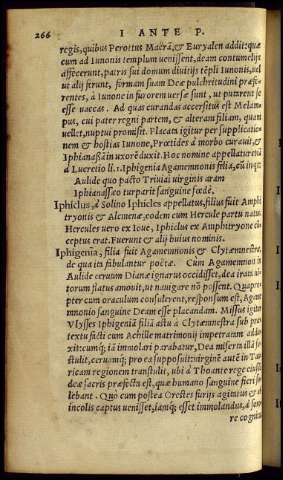 266 I ANTE P.
regis, quibus Perottus Macrã, & Euryalen addit: quæ
cum ad Iunonis templum uenissent, deam contumelijs
affecerunt, patris sui domum diuitijs tẽpli Iunonis, uel
ut alij ferunt, formam suam Deæ pulchritudini præfe-
rentes, à Iunone in furorem uersæ sunt, ut putarent se
esse uaccas. Ad quas curandas accersitus est Melam-
pus, cui pater regni partem, & alteram filiam, quam
uellet, nuptui promisit. Placata igitur per supplicatio
nem & hostias Iunone, Prœtides à morbo curauit, &
Iphianassã in uxorẽ duxit. Hoc nomine appellatur etiã
à Lucretio li. 1. Iphigenia Agamemnonis filia, cũ inquit:
Aulide quo pacto Triuiai virginis aram
Iphianassæo turparit sanguine fœdè.
Iphiclus, à Solino Iphicles appellatus, filius fuit Amphi
tryonis & Alcmenæ, eodem cum Hercule partu natus.
Hercules uero ex Ioue, Iphiclus ex Amphitryone con
ceptus erat. Fuerunt & alij huius nominis.
Iphigenia, filia fuit Agamemnonis & Clytæmnestræ,
de qua ita fabulantur poëtæ. Cum Agamemnon in
Aulide ceruum Dianæ ignarus occidisset, dea irata uẽ-
torum flatus amouit, ut nauigare nõ possent. Quaprop-
pter cum oraculum consulerent, responsum est, Agame
mnonio sanguine Deam esse placandam. Missus igitur
Vlysses Iphigeniã filiã astu à Clytæmnestra sub præ
textu facti cum Achille matrimonij impetratam addu-
xit: cumq́; iã immolari parabatur, Dea miserta illã su-
stulit, ceruamq́; pro ea supposuit: virginẽ autẽ in Tau-
ricam regionem transtulit, ubi à Thoante rege eiusdẽ
deæ sacris præfecta est, quæ humano sanguine fieri so-
lebant. Quo cum postea Orestes furijs agitatus et ab
incolis captus uenisset, iamq́; esset immolandus, à soro
re cognitus